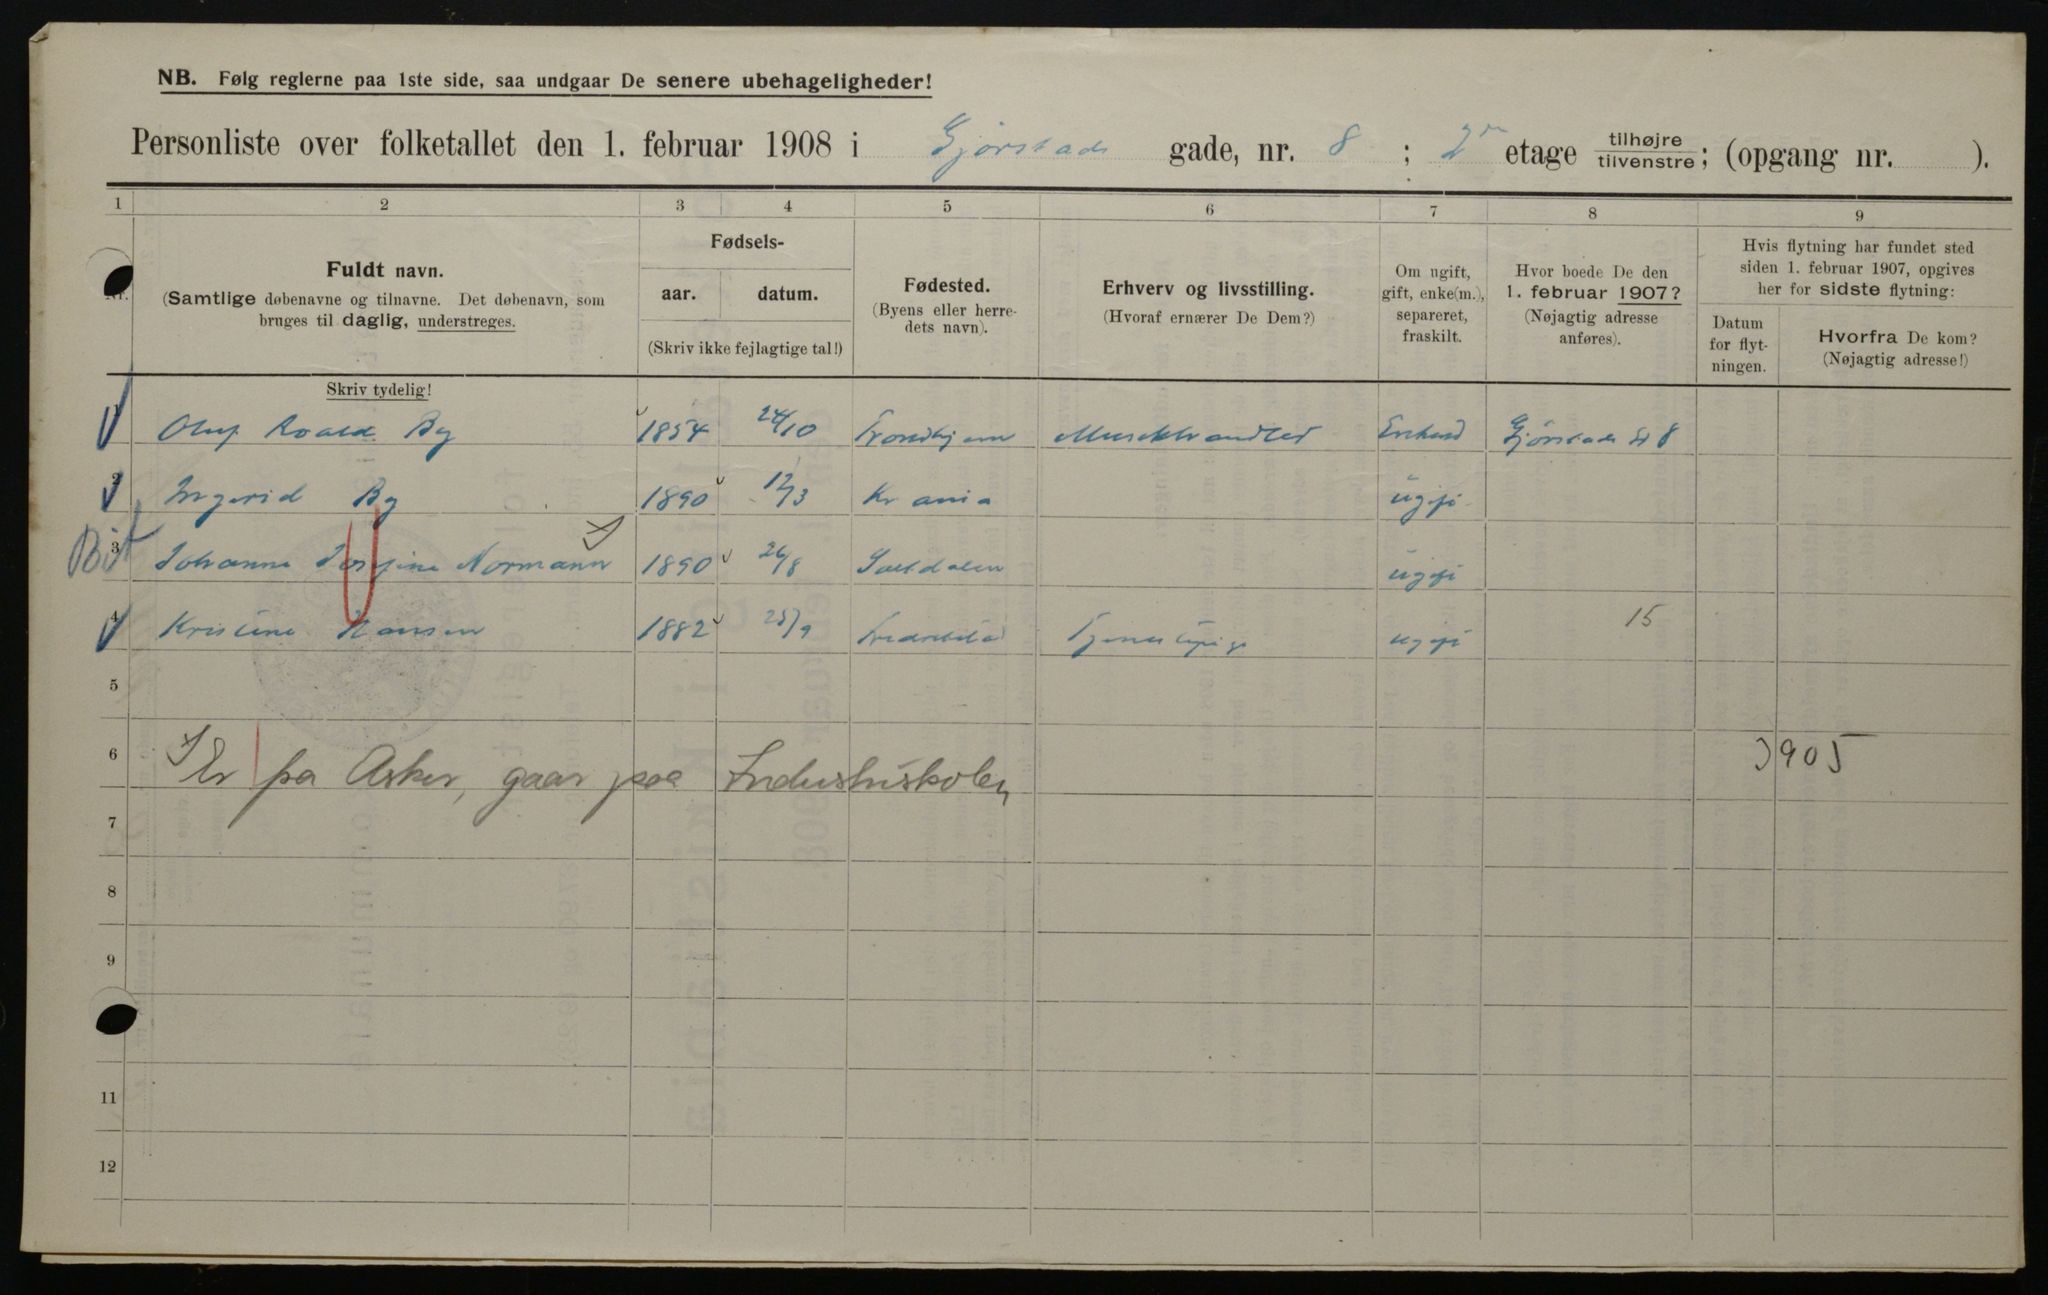 NB. Følg reglerne paa 1ste side, saa undgaar De senere ubehageligheder!
Personliste over folketallet den 1. februar 1908 i Gjørstads gade, nr. 8 ; 2 etage tilhøjre tilvenstre; (opgang nr. ).
1 2 3 4 5 6 7 8 9
Nr.
Fuldt navn.
(Samtlige døbenavne og tilnavne. Det døbenavn, som
bruges til daglig, understreges.
Skriv tydelig!
Fødsels-
aar. datum.
(Skriv ikke fejlagtige tal!)
Fødested.
(Byens eller herre-
dets navn).
Erhverv og livsstilling.
(Hvoraf ernærer De Dem?)
Om ugift,
gift, enke(m.),
separeret,
fraskilt.
Hvor boede De den
1. februar 1907?
(Nøjagtig adresse
anføres).
Hvis flytning har fundet sted
siden 1. februar 1907, opgives
her for sidste flytning:
Datum
for flyt-
ningen.
Hvorfra De kom?
(Nøjagtig adresse!)
1 Oluf Roald By 1854 24/10 Trondhjem Musikhandler Enkem Gjørstads gt 8
2 Ingerid By 1890 12/3 Kr ania ugift
Bor 3 Johanne Josefine Normann 1890 26/8 Saltdalen ugift
4 Kristine Hansen 1882 25/9 Fredrikstad Tjenestepige ugift 15
5
6 Er paa Asker, gaar paa Industriskolen 3905
7
8
9
11
12